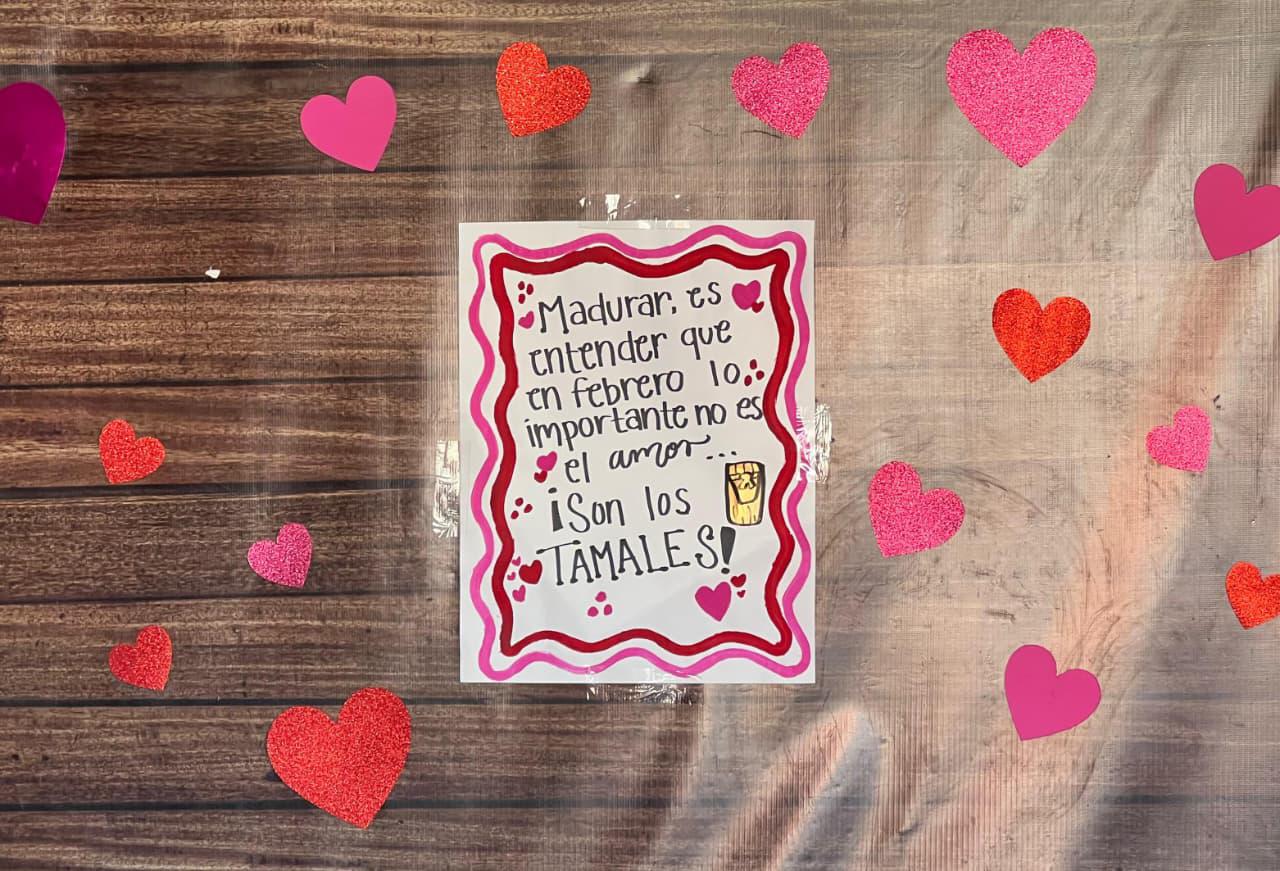 Madurar, es
entender que
en febrero lo
importante no es
el amor...
¡Son los
TAMALES!